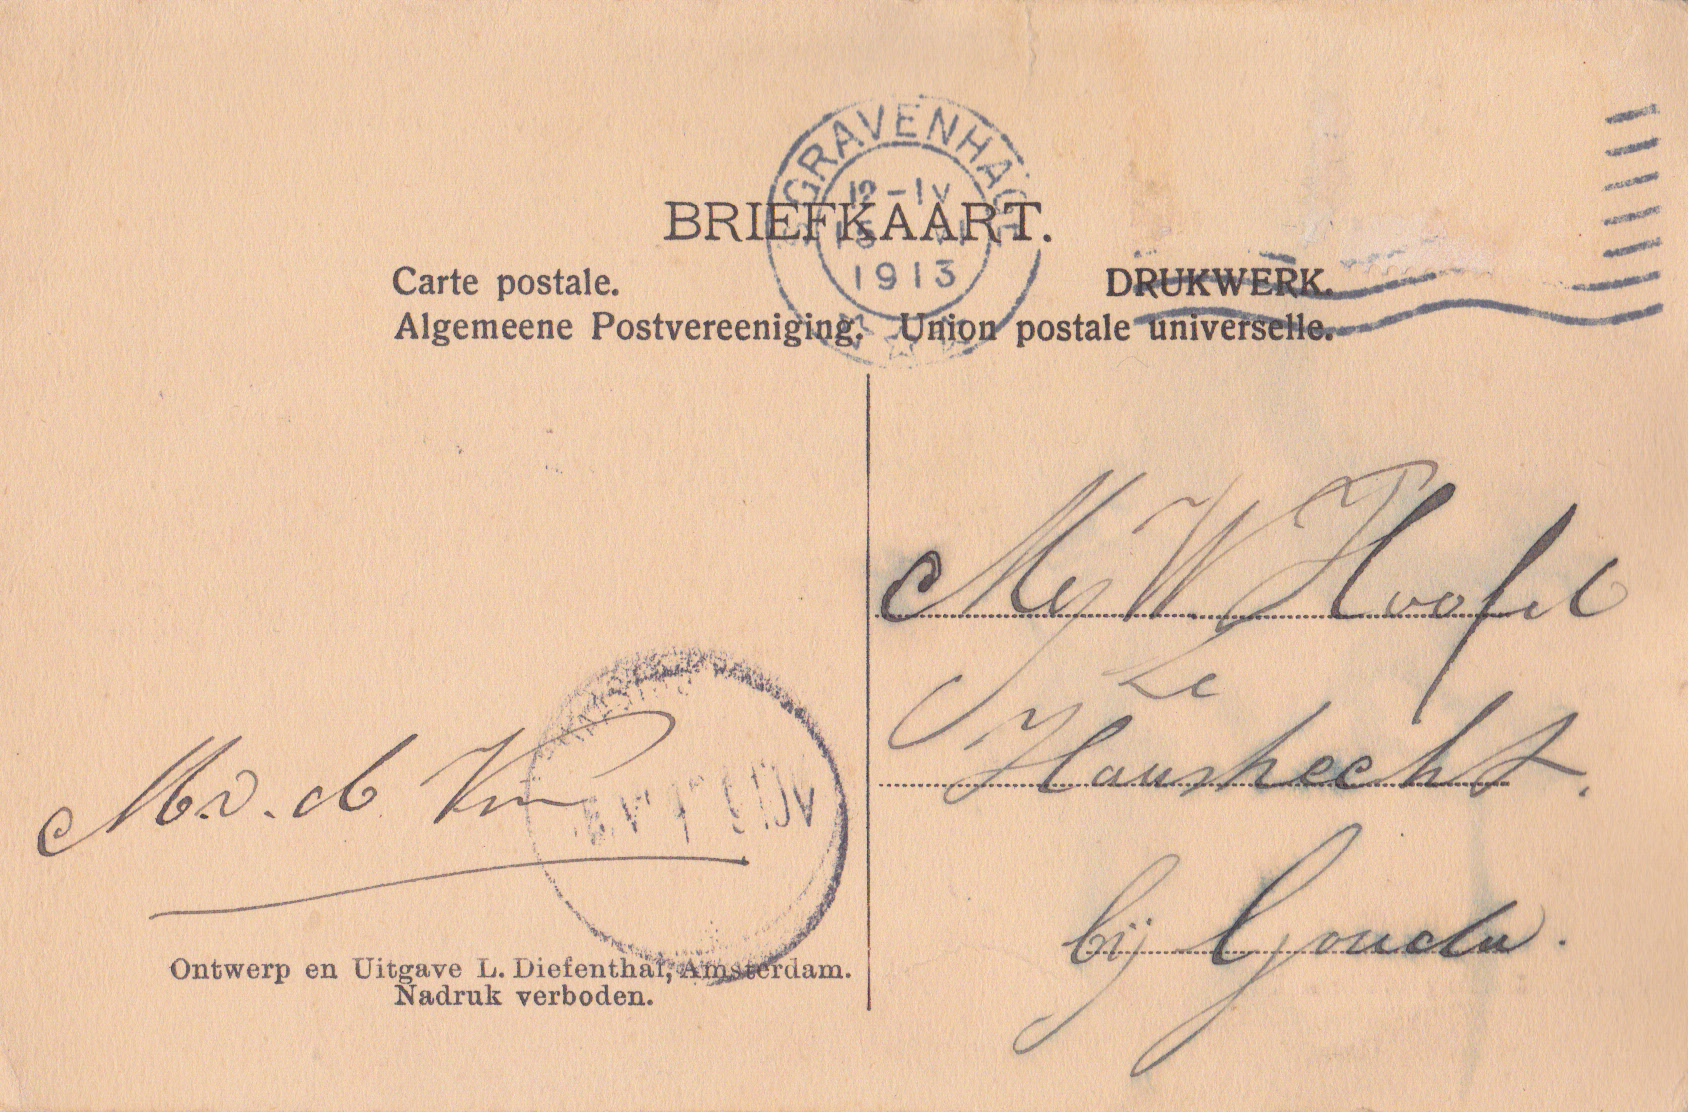 'S GRAVENHAGE
12-1V
1913
BRIEFKAART.
Carte postale. DRUKWERK.
Algemeene Postvereeniging. Union postale universelle.
Mej W Hooft
te
Haastrecht.
bij Gouda.
M. v. d.
Ontwerp en Uitgave L. Diefenthal, Amsterdam.
Nadruk verboden.